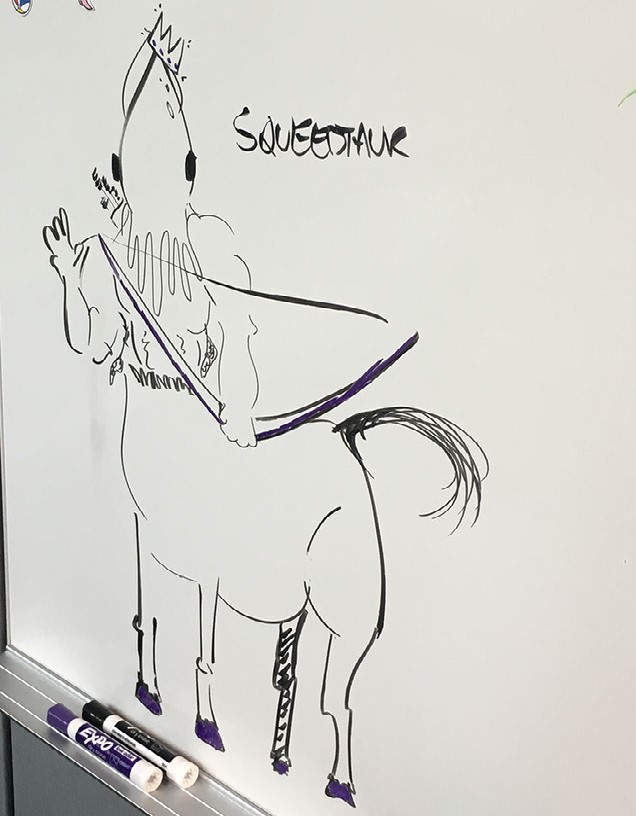 SQUEEDTAUR
EXPO